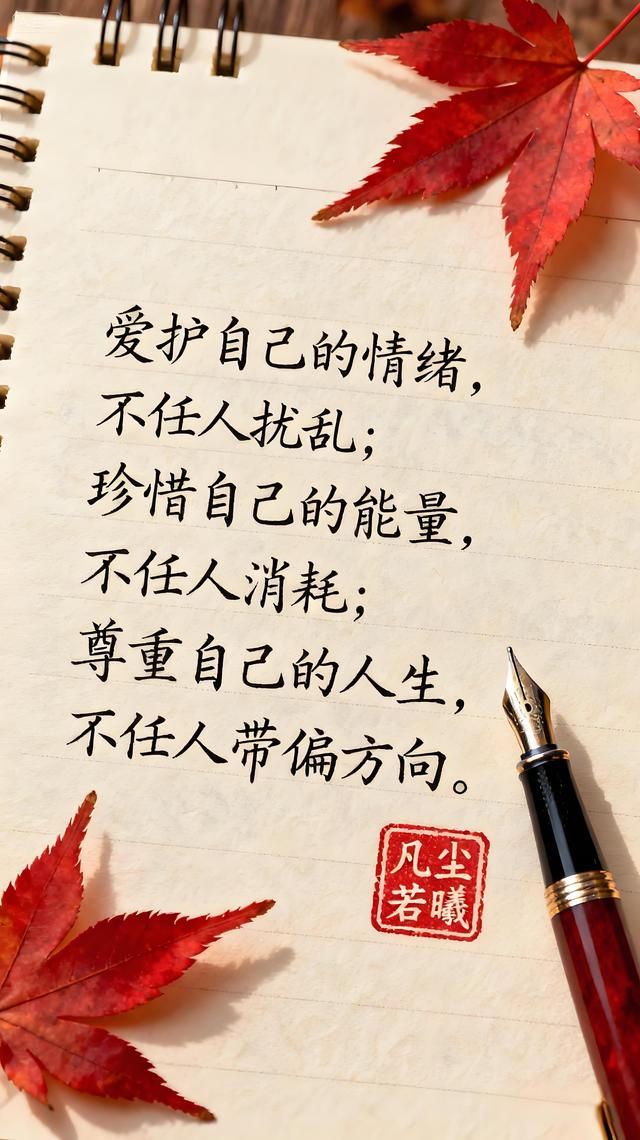 爱护自己的情绪，
不任人扰乱；
珍惜自己的能量，
不任人消耗；
尊重自己的人生，
不任人带偏方向。
凡尘
若曦